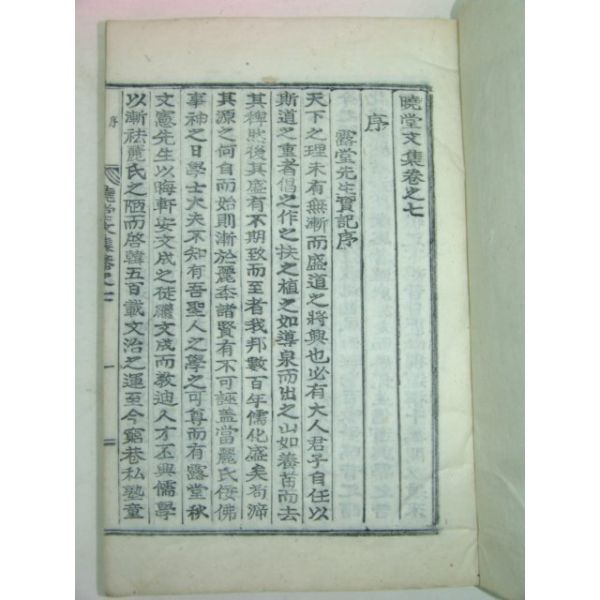 曉堂文集卷之七
序
露堂先生實記序
天下之理未有無漸而盛道之將興也必有大人君子自任以
斯道之重者倡之作之扶之植之如導泉而出之山如養苗而去
其稗然後其盛有不期致而至者我邦數百年儒化盛矣苟溯
其源之何自而始則漸於麗季諸賢有不可誣盖當麗氏佞佛
事神之日學士大夫不知有吾聖人之學之可尊而有露堂秋
文憲先生以晦軒安文成之徒繼文成而敎迪人才丕興儒學
以漸祛麗氏之陋而啓韓五百載文治之運至今窮巷私塾童
序
曉堂文集卷之七
一